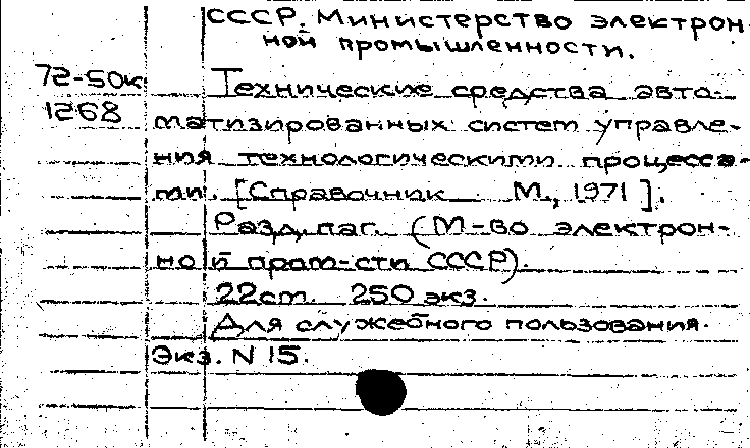 СССР. Министерство электрон
ной промышленности.
72-50к
1268
Технические средства авто-
матизированных систем управле-
ния технологическими процесса-
ми. [Справочник М., 1971].
Разд. паг. (М-во электрон-
ной пром-сти СССР).
22см. 250 экз.
Для служебного пользования.
Экз. N 15.